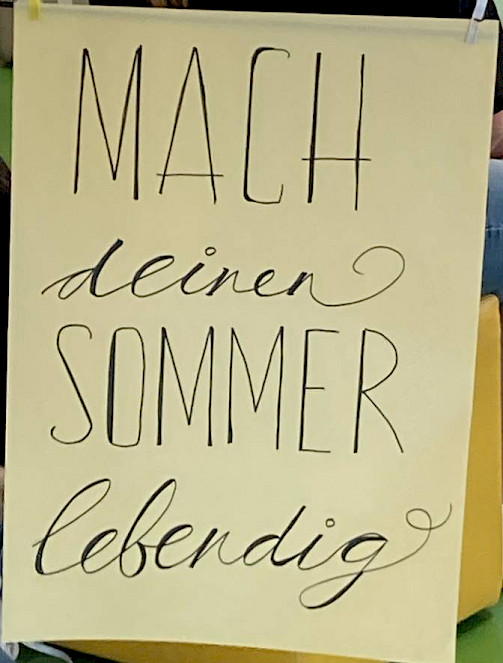 MACH
deinen
SOMMER
lebendig